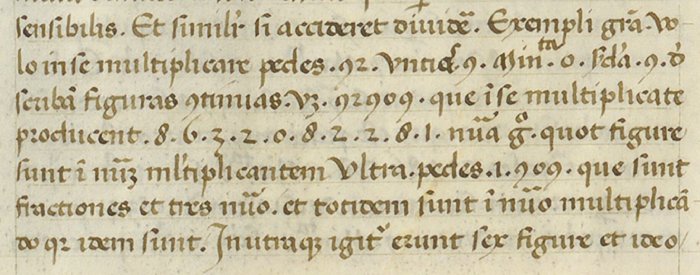 sensibilis. Et similr si accideret dividē. Exempli grā. vo
lo in se multiplicare pedes .92. untie 9. Min^ta .0. sda .9. d'
scribā figuras 9tinuas. vz. 92909. que ī se multiplicate
producent .8.6.3.2.0.8.2.2.8.1. nūa g°. quot figure
sunt ī nūz ml'tiplicantem ultra.pedes.i.909. que sunt
fractiones et tres nūo. et totidem sunt ī nūo multiplicā
do qr idem sunt. In utraqz igitr erunt sex figure et ideo